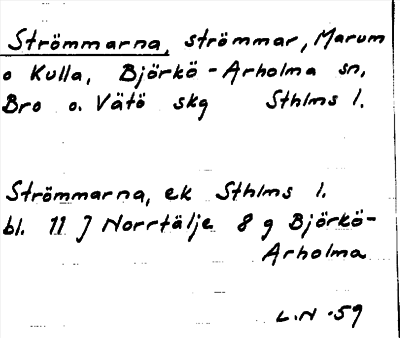 Strömmarna, strömmar, Marum
o Kulla, Björkö - Arholma sn,
Bro o. Vätö skg Sthlms l.
Strömmarna, ek Sthlms l.
bl. 11 J Norrtälje 8 g Björkö-
Arholma
L.N -59